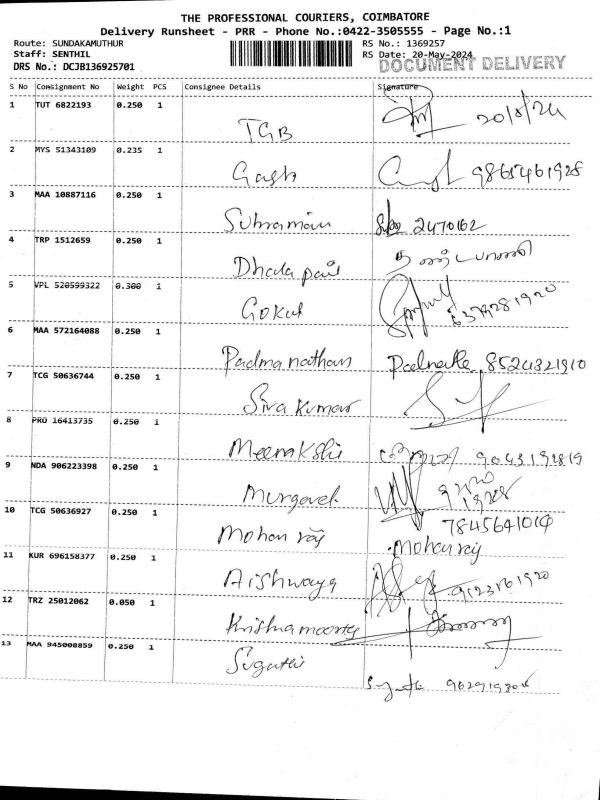 THE PROFESSIONAL COURIERS, COIMBATORE
Delivery Runsheet - PRR - Phone No.:0422-3505555 - Page No.:1
Route: SUNDAKAMUTHUR RS No.: 1369257
Staff: SENTHIL RS Date: 20-May-2024
DRS No.: DCJB136925701 DOCUMENT DELIVERY
S No Consignment No Weight PCS Consignee Details Signature
1 TUT 6822193 0.250 1
TGB 20/5/24
2 MYS 51343109 0.235 1
9865461928
3 MAA 10887116 0.250 1
Subramani 2470162
4 TRP 1512659 0.250 1
5 VPL 520599322 0.300 1
Gokul 6379281920
6 MAA 572164088 0.250 1
Padmanathan 8524321910
7 TCG 50636744 0.250 1
Siva Kumar
8 PRO 16413735 0.250 1
Meenakshi 9043192819
9 NDA 906223398 0.250 1
Murgavel
10 TCG 50636927 0.250 1
7845641014
Mohan raj Mohan raj
11 KUR 696158377 0.250 1
Aishwaya 9123161920
12 TRZ 25012062 0.050 1
Krishna moorthy
13 MAA 945008859 0.250 1
Sugathi